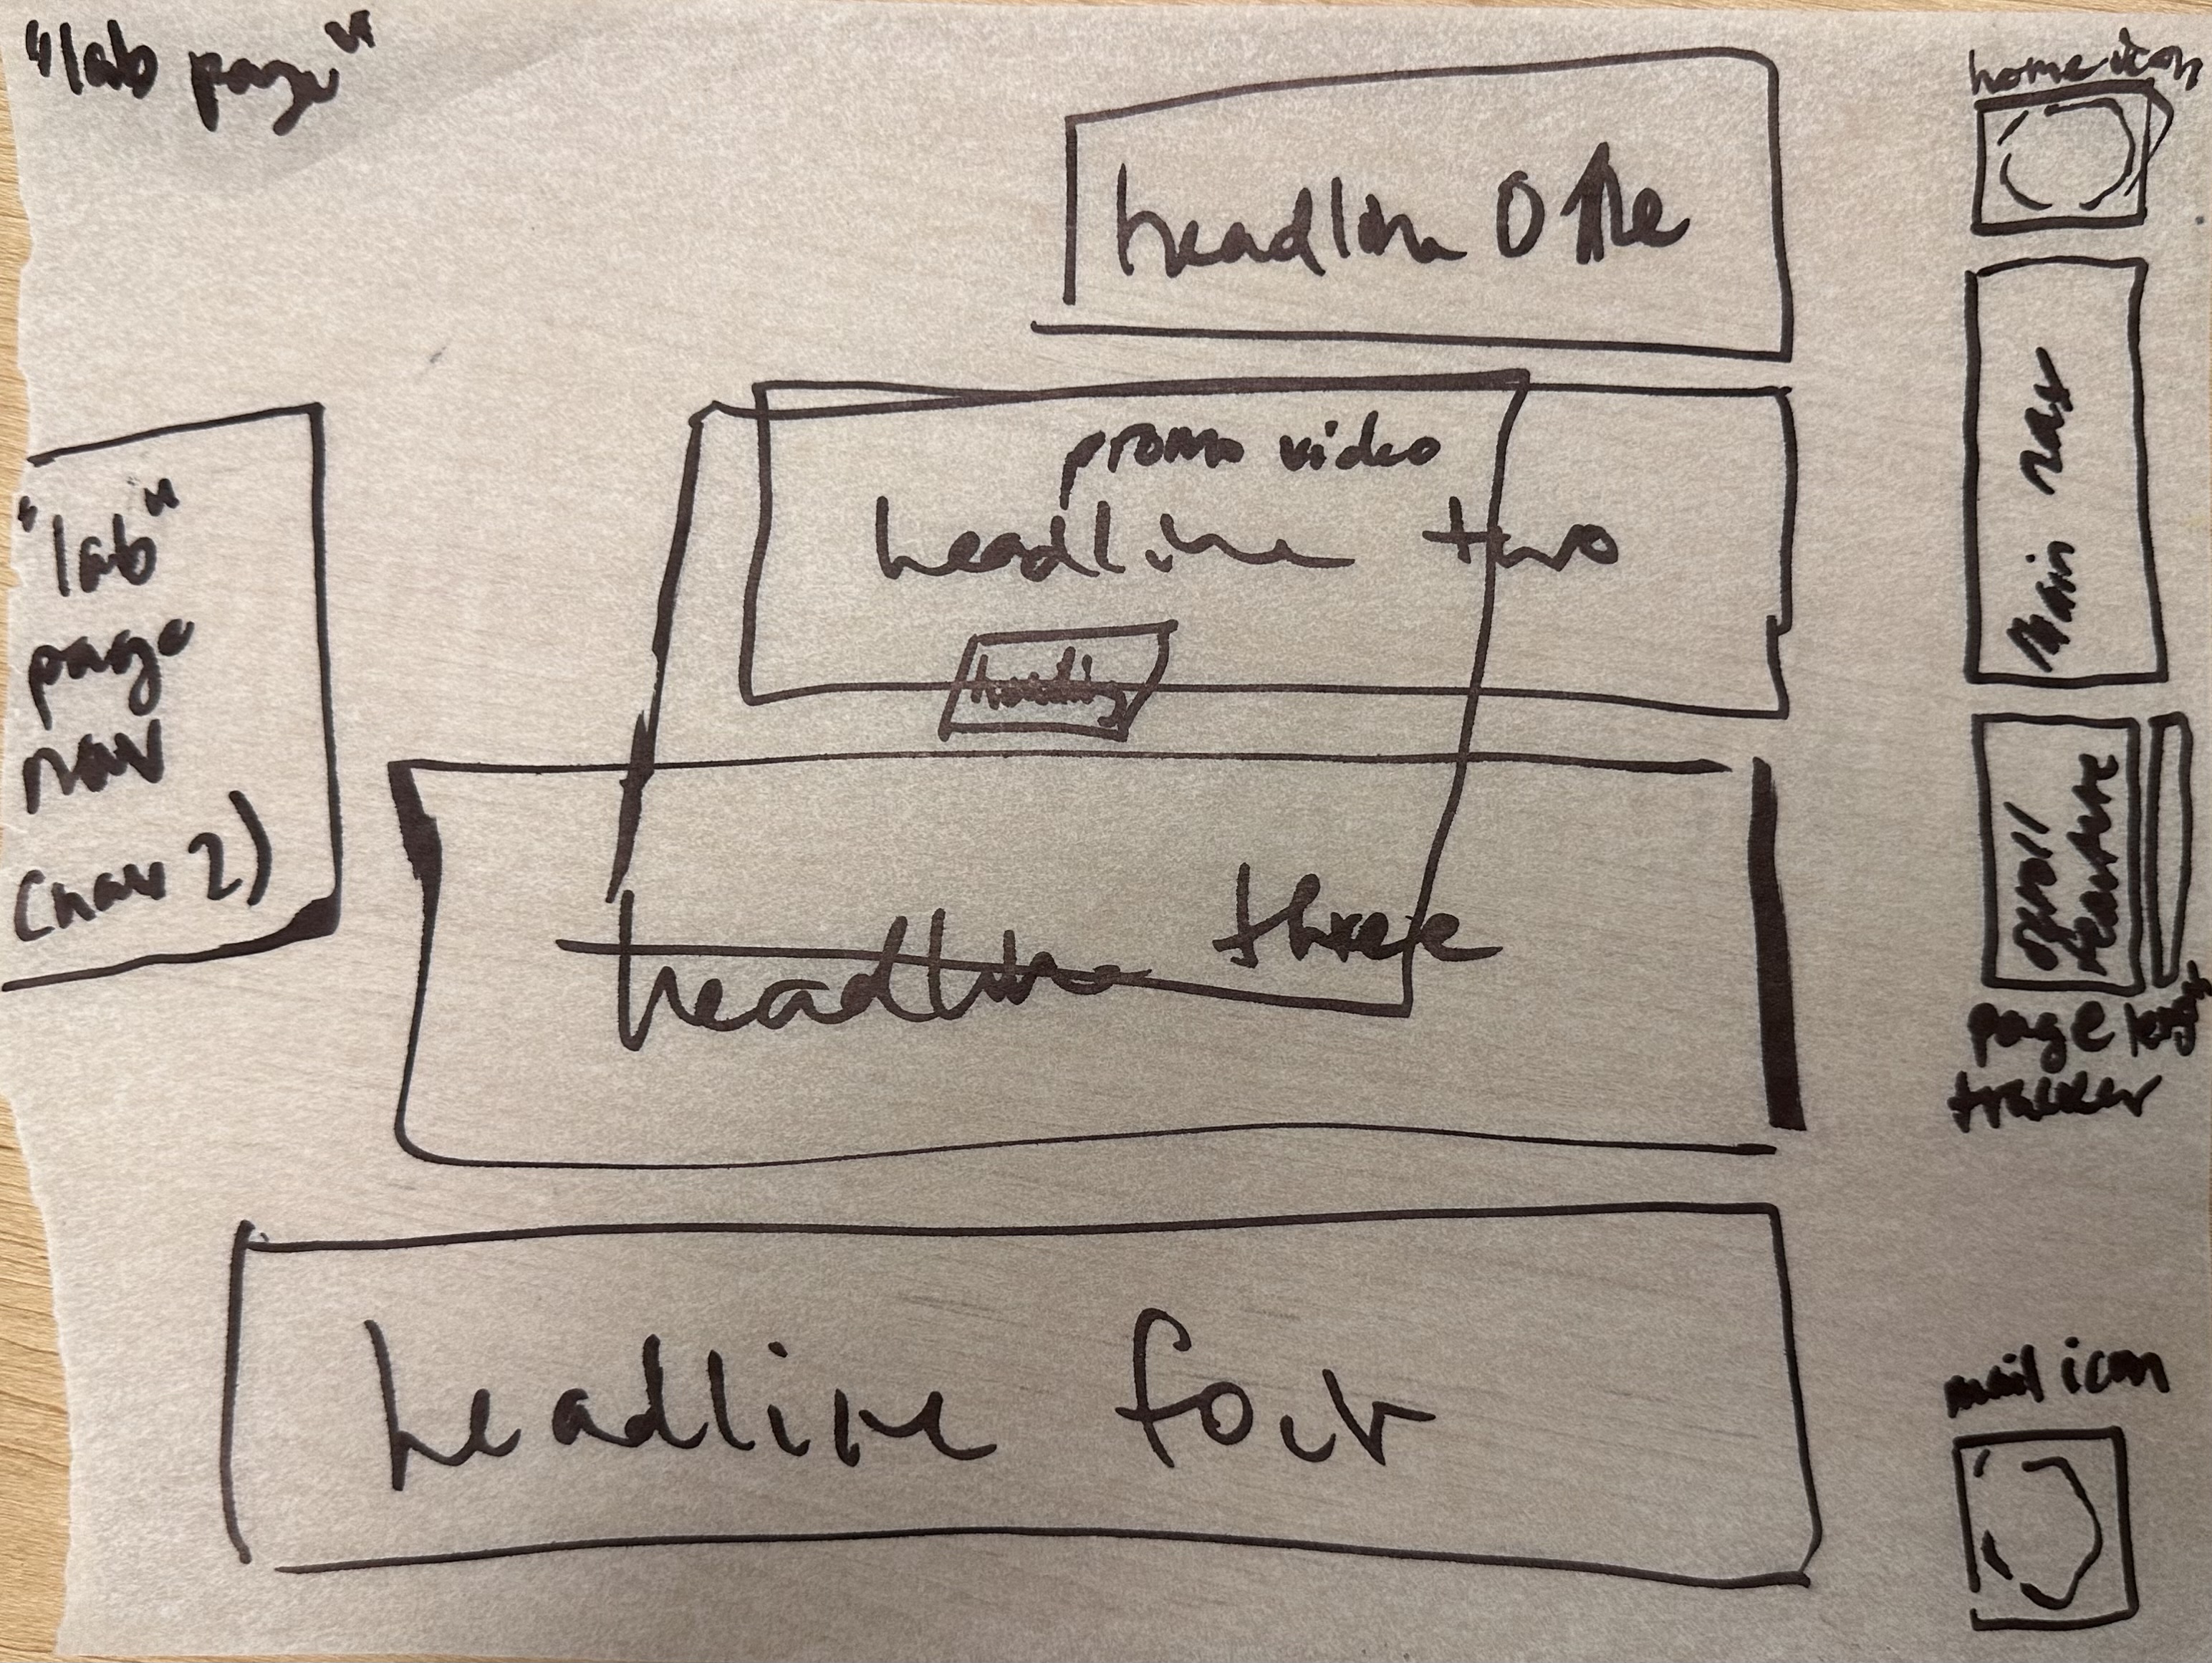 "lab page"
home icon
headline one
main nav
promo video
headline two
heading
"lab"
page
nav
(nav 2)
scroll
feature
headline three
page
tracker
headline four
mail icon